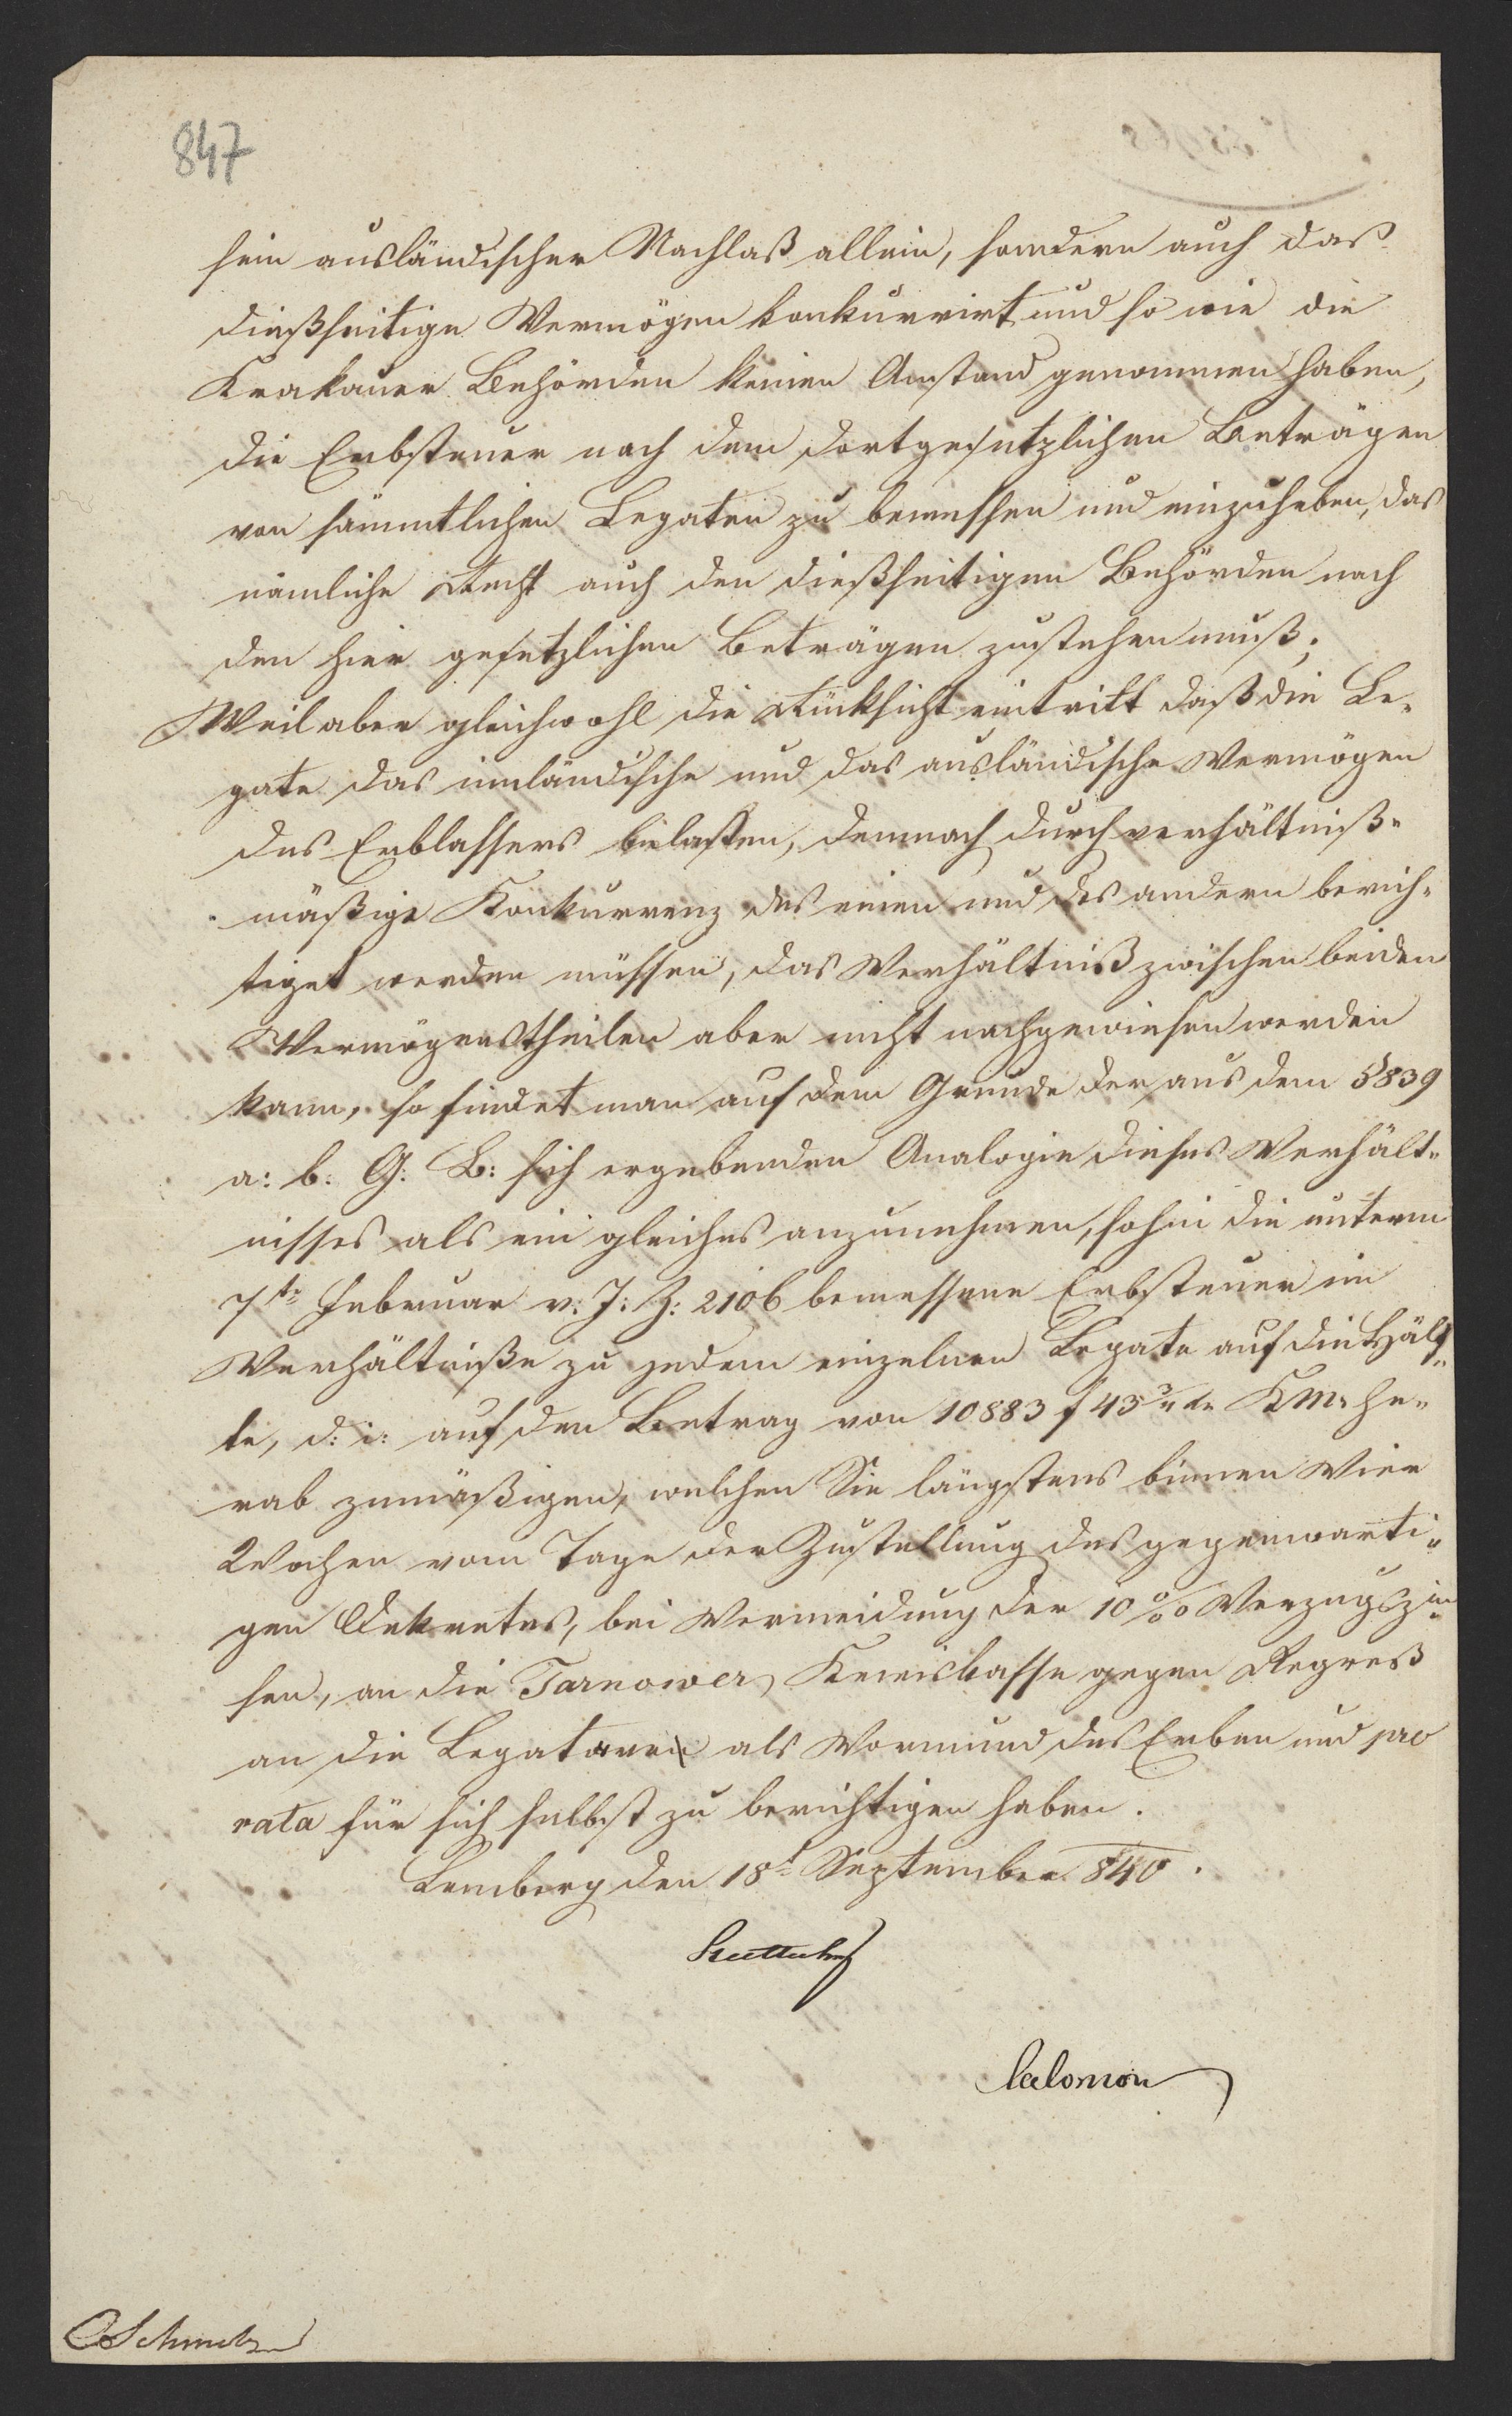 847
sein ausländischer Nachlaß allein, sondern auch das
dießseitige Vermögen konkurrirt und so wie die
Krakauer Behörden keinen Anstand genommen haben,
die Erbsteuer nach dem dortgesetzlichen Beträgen
von sämmtlichen Legaten zu bemessen und einzuheben, das
nämliche Recht auch den dießseitigen Behörden nach
den hier gesetzlichen Beträgen zustehen muß;
Weil aber gleichwohl die Rücksicht eintritt daß die Le-
gate das innländische und das ausländische Vermögen
des Erblassers belasten, demnach durch verhältniß-
mäßige Konkurrenz des einen und des andern berich-
tiget werden müssen, das Verhältniß zwischen beiden
Vermögenstheilen aber nicht nachgewiesen werden
kann, so findet man auf dem Grunde der aus dem §839
a: b: G: B: sich ergebenden Analogie dieses Verhält-
nisses als ein gleiches anzunehmen, sohin die unterm
7te Februar v: J: Z: 2106 bemessene Erbsteuer im
Verhältniße zu jedem einzelnen Legate auf die Hälf-
te, d: i: auf den Betrag von 10883 f 43 kr KM: he-
rab zumäßigen, welchen Sie längstens binnen Vier
Wochen vom Tage der Zustellung des gegenwarti-
gen Dekretes, bei Vermeidung der 10% Verzugszin-
sen, an die Tarnower Kreiskasse gegen Regreß
an die Legatare als Vormund des Erben und pro
rata für sich selbst zu berichtigen haben.
Lemberg den 18t September 840.
Salomon